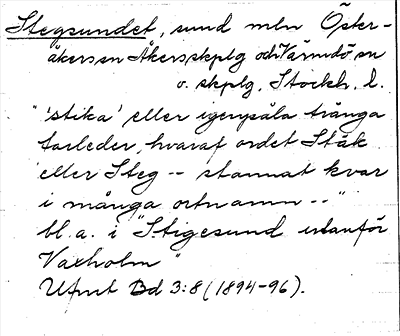 Stegsundet, sund mln Öster-
åkers sn Åkers skplg och Värmdö sn
o. skplg, Stockh. l.
"'stika' eller igenpåla trånga
farleder, hvaraf ordet Stäk
eller Steg -- stannat kvar
i många ortnamn --"
bl. a. i "Stigesund utanför
Vaxholm"
Ufmt Bd 3:8 (1894-96).